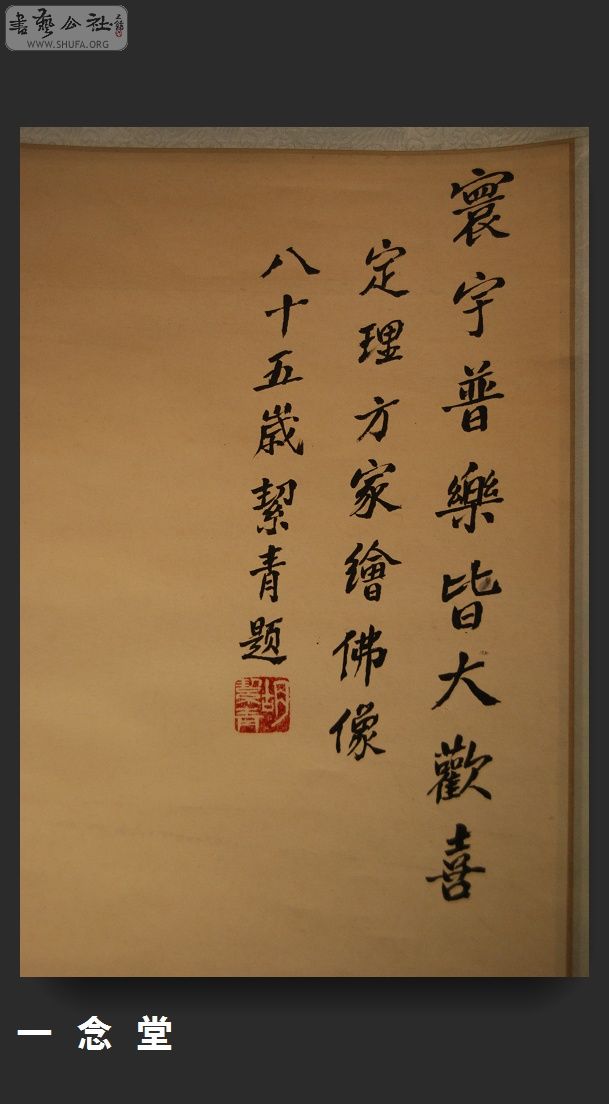 書藝公社
WWW.SHUFA.ORG
寰宇普樂皆大歡喜
定理方家繪佛像
八十五歲絜青題
胡絜青
一念堂